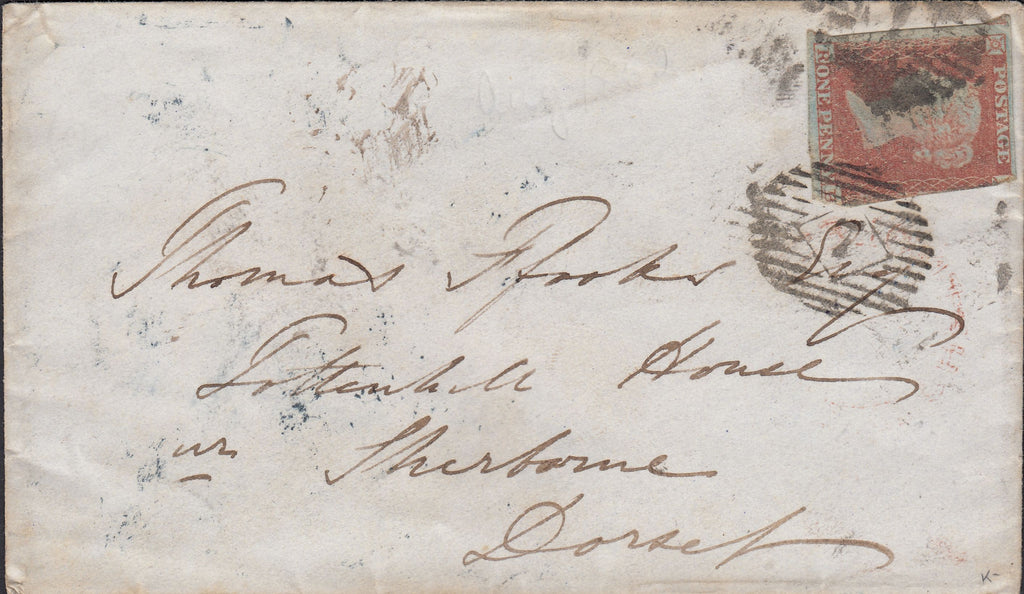 POSTAGE
ONE PENNY
2
Thomas Ffooks Esq
Tottenhill House
nr Sherborne
Dorset
K-